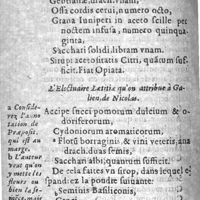 Gentianæ, drach. vnam,
Ossa cordis cerui, numero octo,
Grana Iuniperi in aceto scille per
noctem infusa, numero quinqua-
ginta,
Sacchari solidi, libram vnam.
Sirupi acetositatis Citri, quātum suf-
ficit. Fiat Opiata.
L'Electuaire Lætitiæ qu'on attribue à Ga-
lien, de Nicolas.
a Conside-
rez l'anno
tation de
Præposit.
qui est au
marge.
b L'auteur
veut qu'on
y mette les
fleurs ou
bien la se-
Accipe succi pomorum dulcium & o-
doriferorum,
Cydoniorum aromaticorum,
Florū borraginis & vini veteris, ana
drach. duas semis,
Sacchari albi, quantum sufficit.
De cela faites vn sirop, dans lequel ef-
pandez la poudre suiuante:
Seminis Basiliconis,